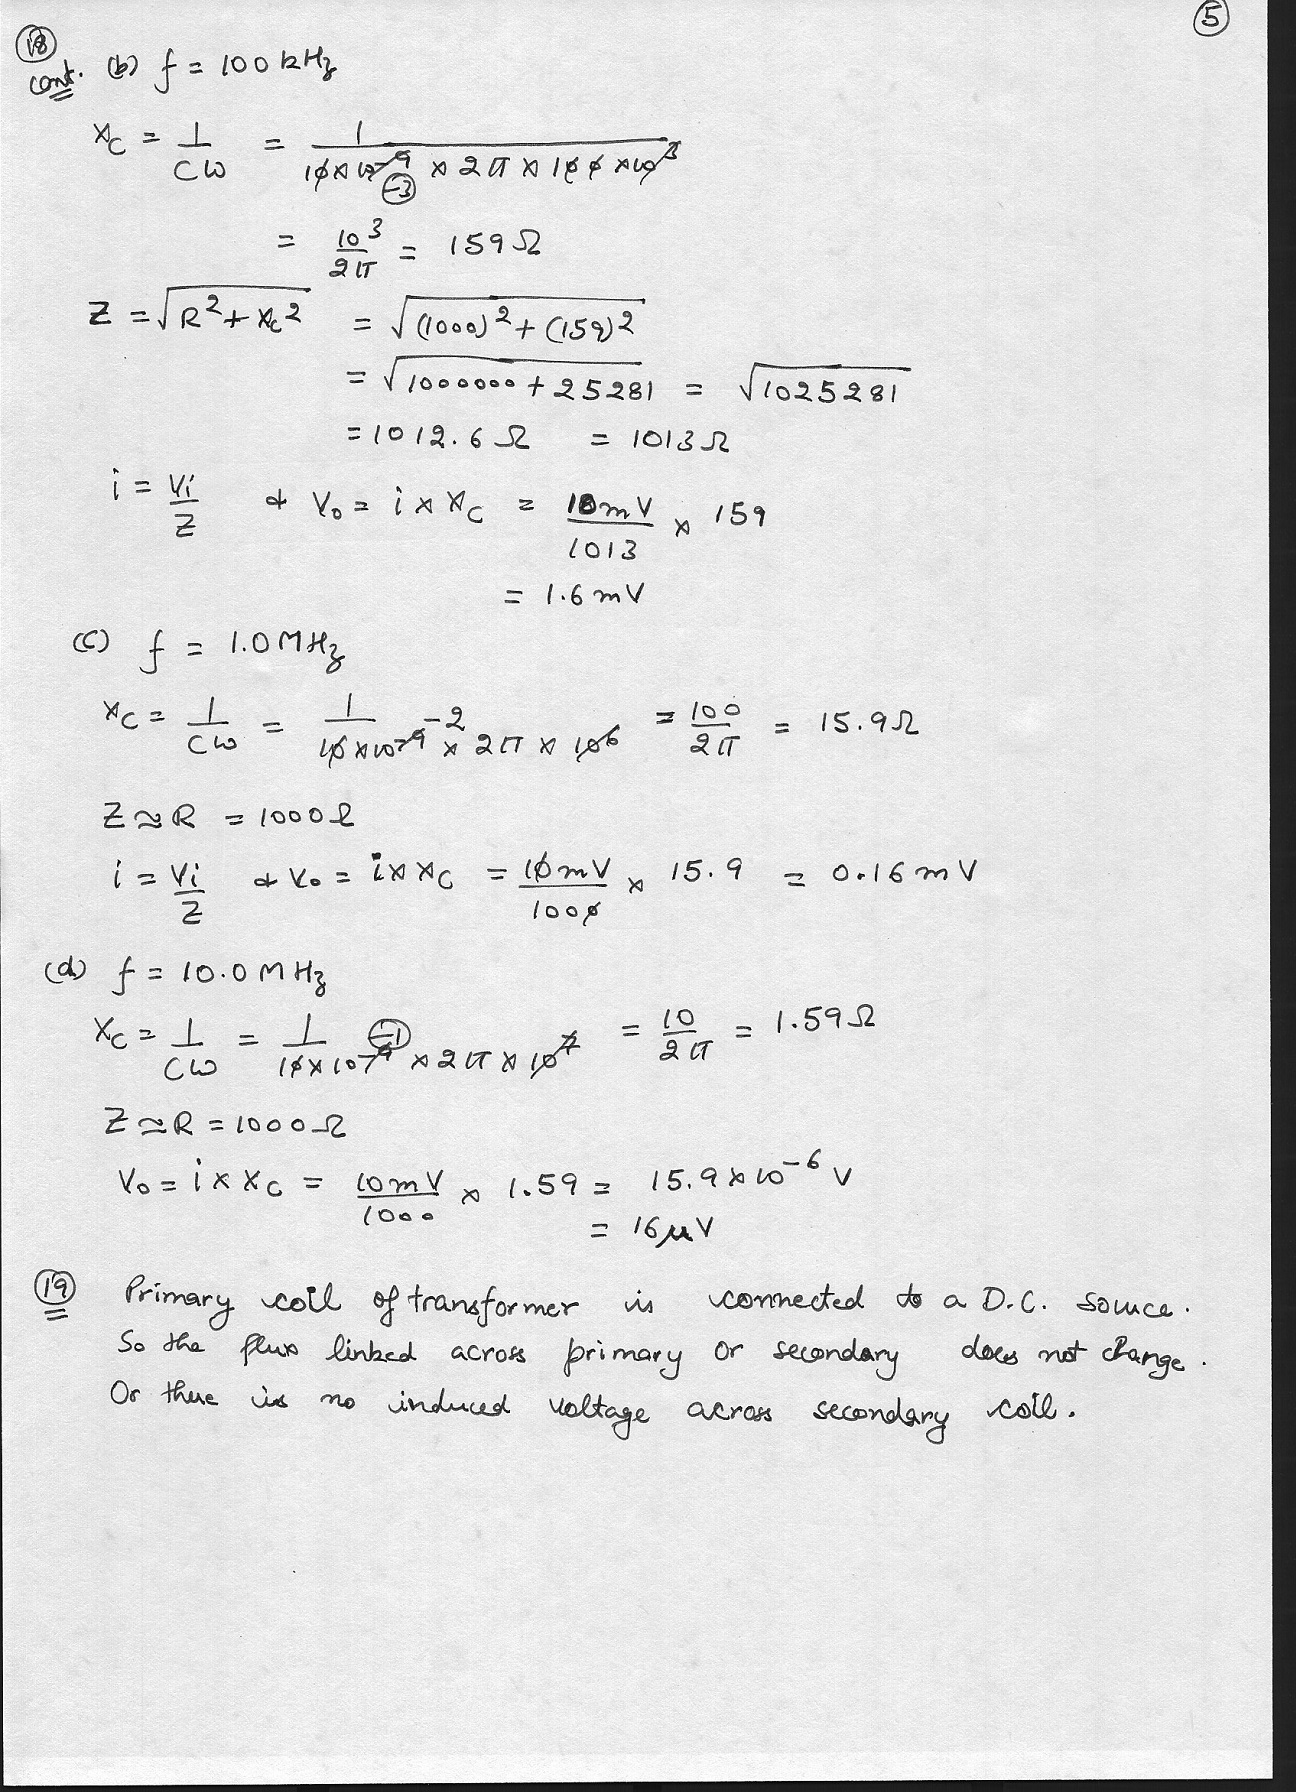 5
18 cont. (b) f = 100 kHz
Xc = 1/Cω = 1/(10×10^-9 × 2π × 100 ×10^3) (-3)
= 10^3/2π = 159 Ω
Z = √(R^2 + Xc^2) = √((1000)^2 + (159)^2)
= √(1000000 + 25281) = √1025281
= 1012.6 Ω = 1013 Ω
i = Vi/Z & Vo = i × Xc = 10mV/1013 × 159
= 1.6 mV
(c) f = 1.0 MHz
Xc = 1/Cω = 1/(10×10^-9 × 2π × 10^6) -2 = 100/2π = 15.9 Ω
Z ≃ R = 1000 Ω
i = Vi/Z & Vo = i × Xc = 10mV/1000 × 15.9 = 0.16 mV
(d) f = 10.0 MHz
Xc = 1/Cω = 1/(10×10^-9 × 2π × 10^7) (-1) = 10/2π = 1.59 Ω
Z ≃ R = 1000 Ω
Vo = i × Xc = 10mV/1000 × 1.59 = 15.9 × 10^-6 V
= 16 μV
19 Primary coil of transformer is connected to a D.C. source.
So the flux linked across primary or secondary does not change.
Or there is no induced voltage across secondary coil.